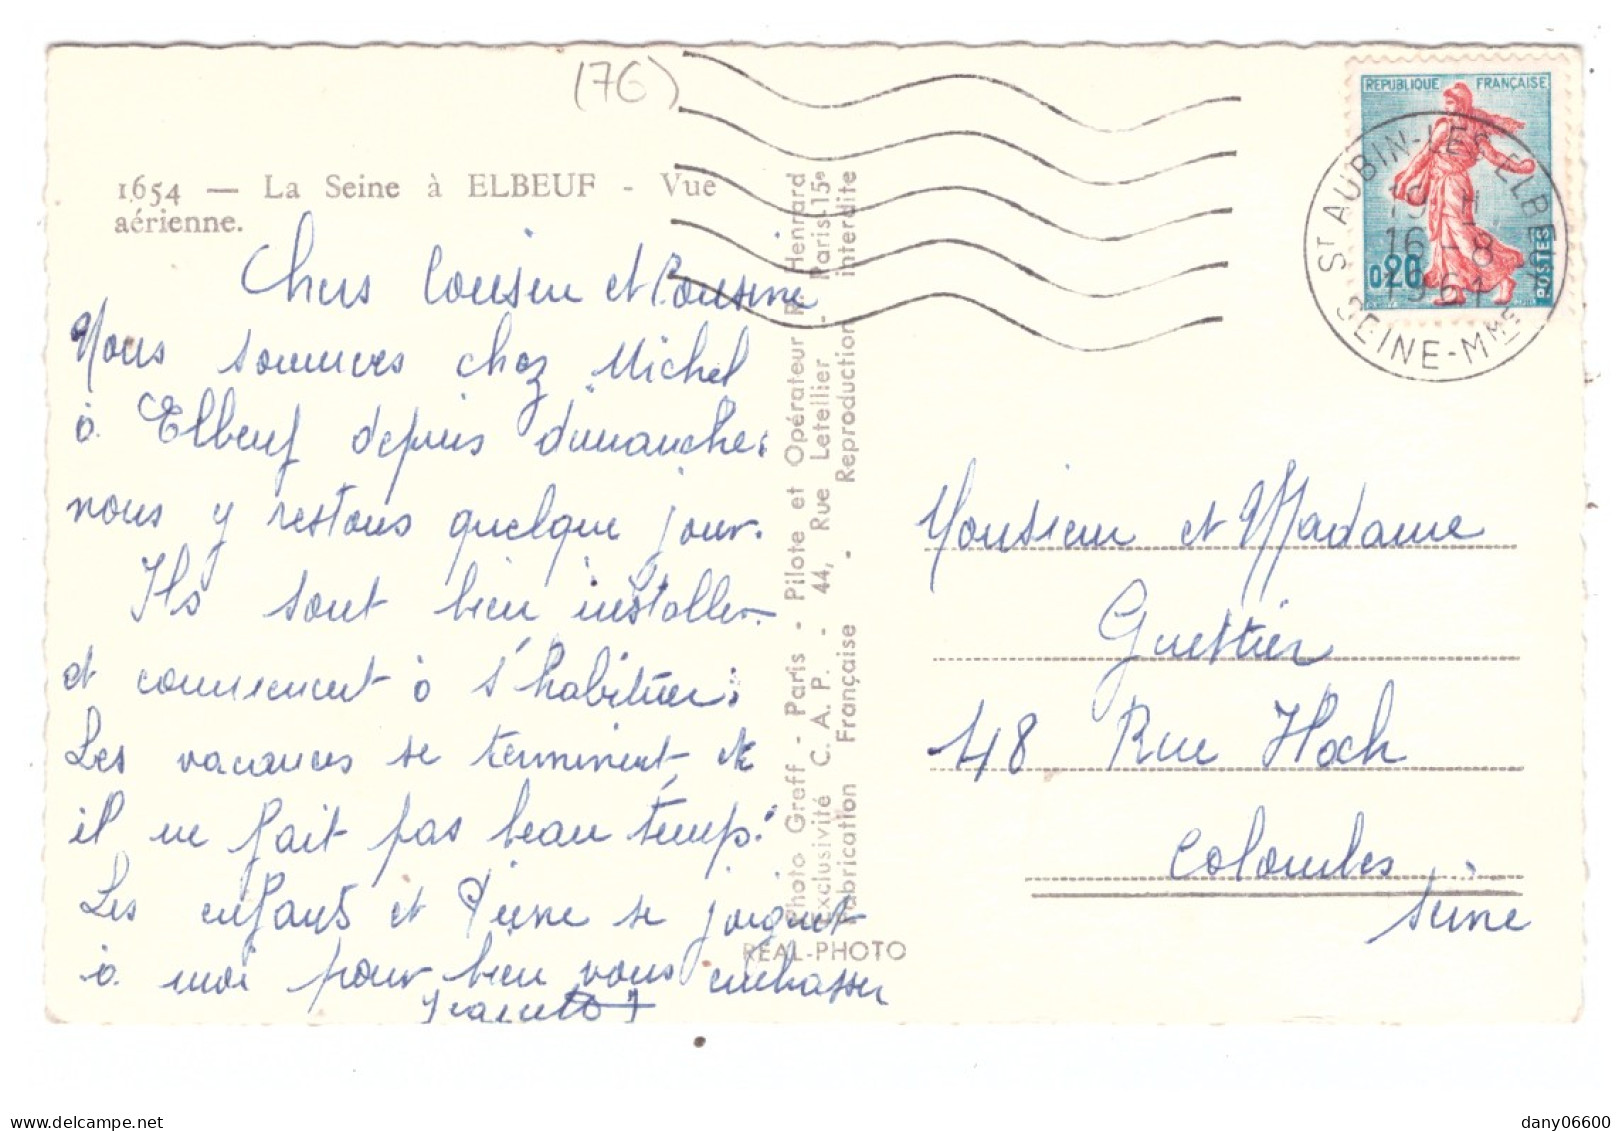 (76)
1654 — La Seine à ELBEUF - Vue
aérienne.
Chers Cousin et Cousine
Nous sommes chez Michel
à Elbeuf depuis dimanche.
nous y restons quelque jour.
Ils sont bien installer.
et commencent à s'habituer.
Les vacances se terminent et
il ne fait pas beau temps.
Les enfants et Pierre se joignet
à moi pour bien vous embrasser
Photo Greff - Paris - Pilote et Opérateur R. Henrard
Exclusivité C. A. P. - 44, Rue Letellier - Paris-15e
Fabrication Française - Reproduction interdite
REAL-PHOTO
REPUBLIQUE FRANÇAISE
0,20
POSTES
ST AUBIN-LES-ELBEUF
19 H
16 - 8
1961
SEINE-Mme
Monsieur et Madame
Guettier
48 Rue Hoch
Colombes
Seine
dany06600